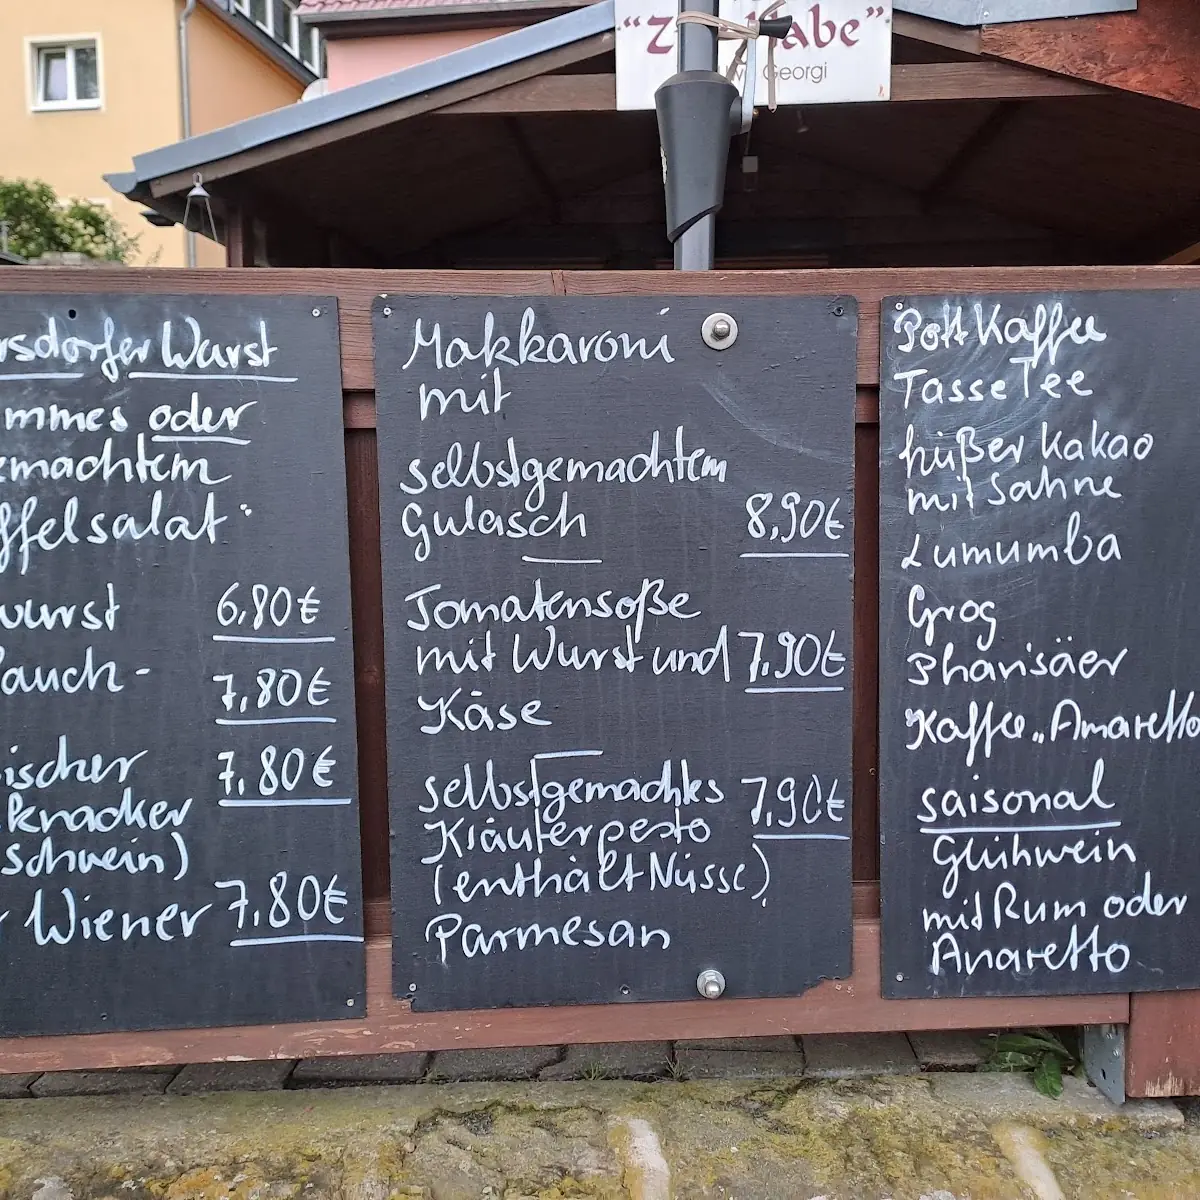 Georgi
Wurst
oder
8,90€
6,80€
7,80€
7,80€
knacker
schwein)
Wiener 7,80€
Makkaroni
mit
selbstgemachtem
Gulasch 8,90€
Tomatensoße
mit Wurst und 7,90€
Käse
selbstgemachtes 7,90€
Kräuterpesto
(enthält Nüsse),
Parmesan
Pott Kaffee
Tasse Tee
Kakao
mit Sahne
Lumumba
Grog
Pharisäer
Kaffee „Amaretto
saisonal
Glühwein
mit Rum oder
Amaretto